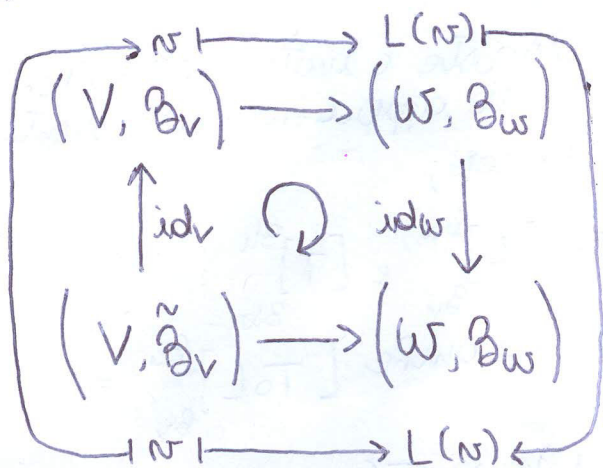 v ⟼ L(v)
(V, B_V) ⟶ (W, B_W)
id_V id_W
(V, B̃_V) ⟶ (W, B_W)
v ⟼ L(v)